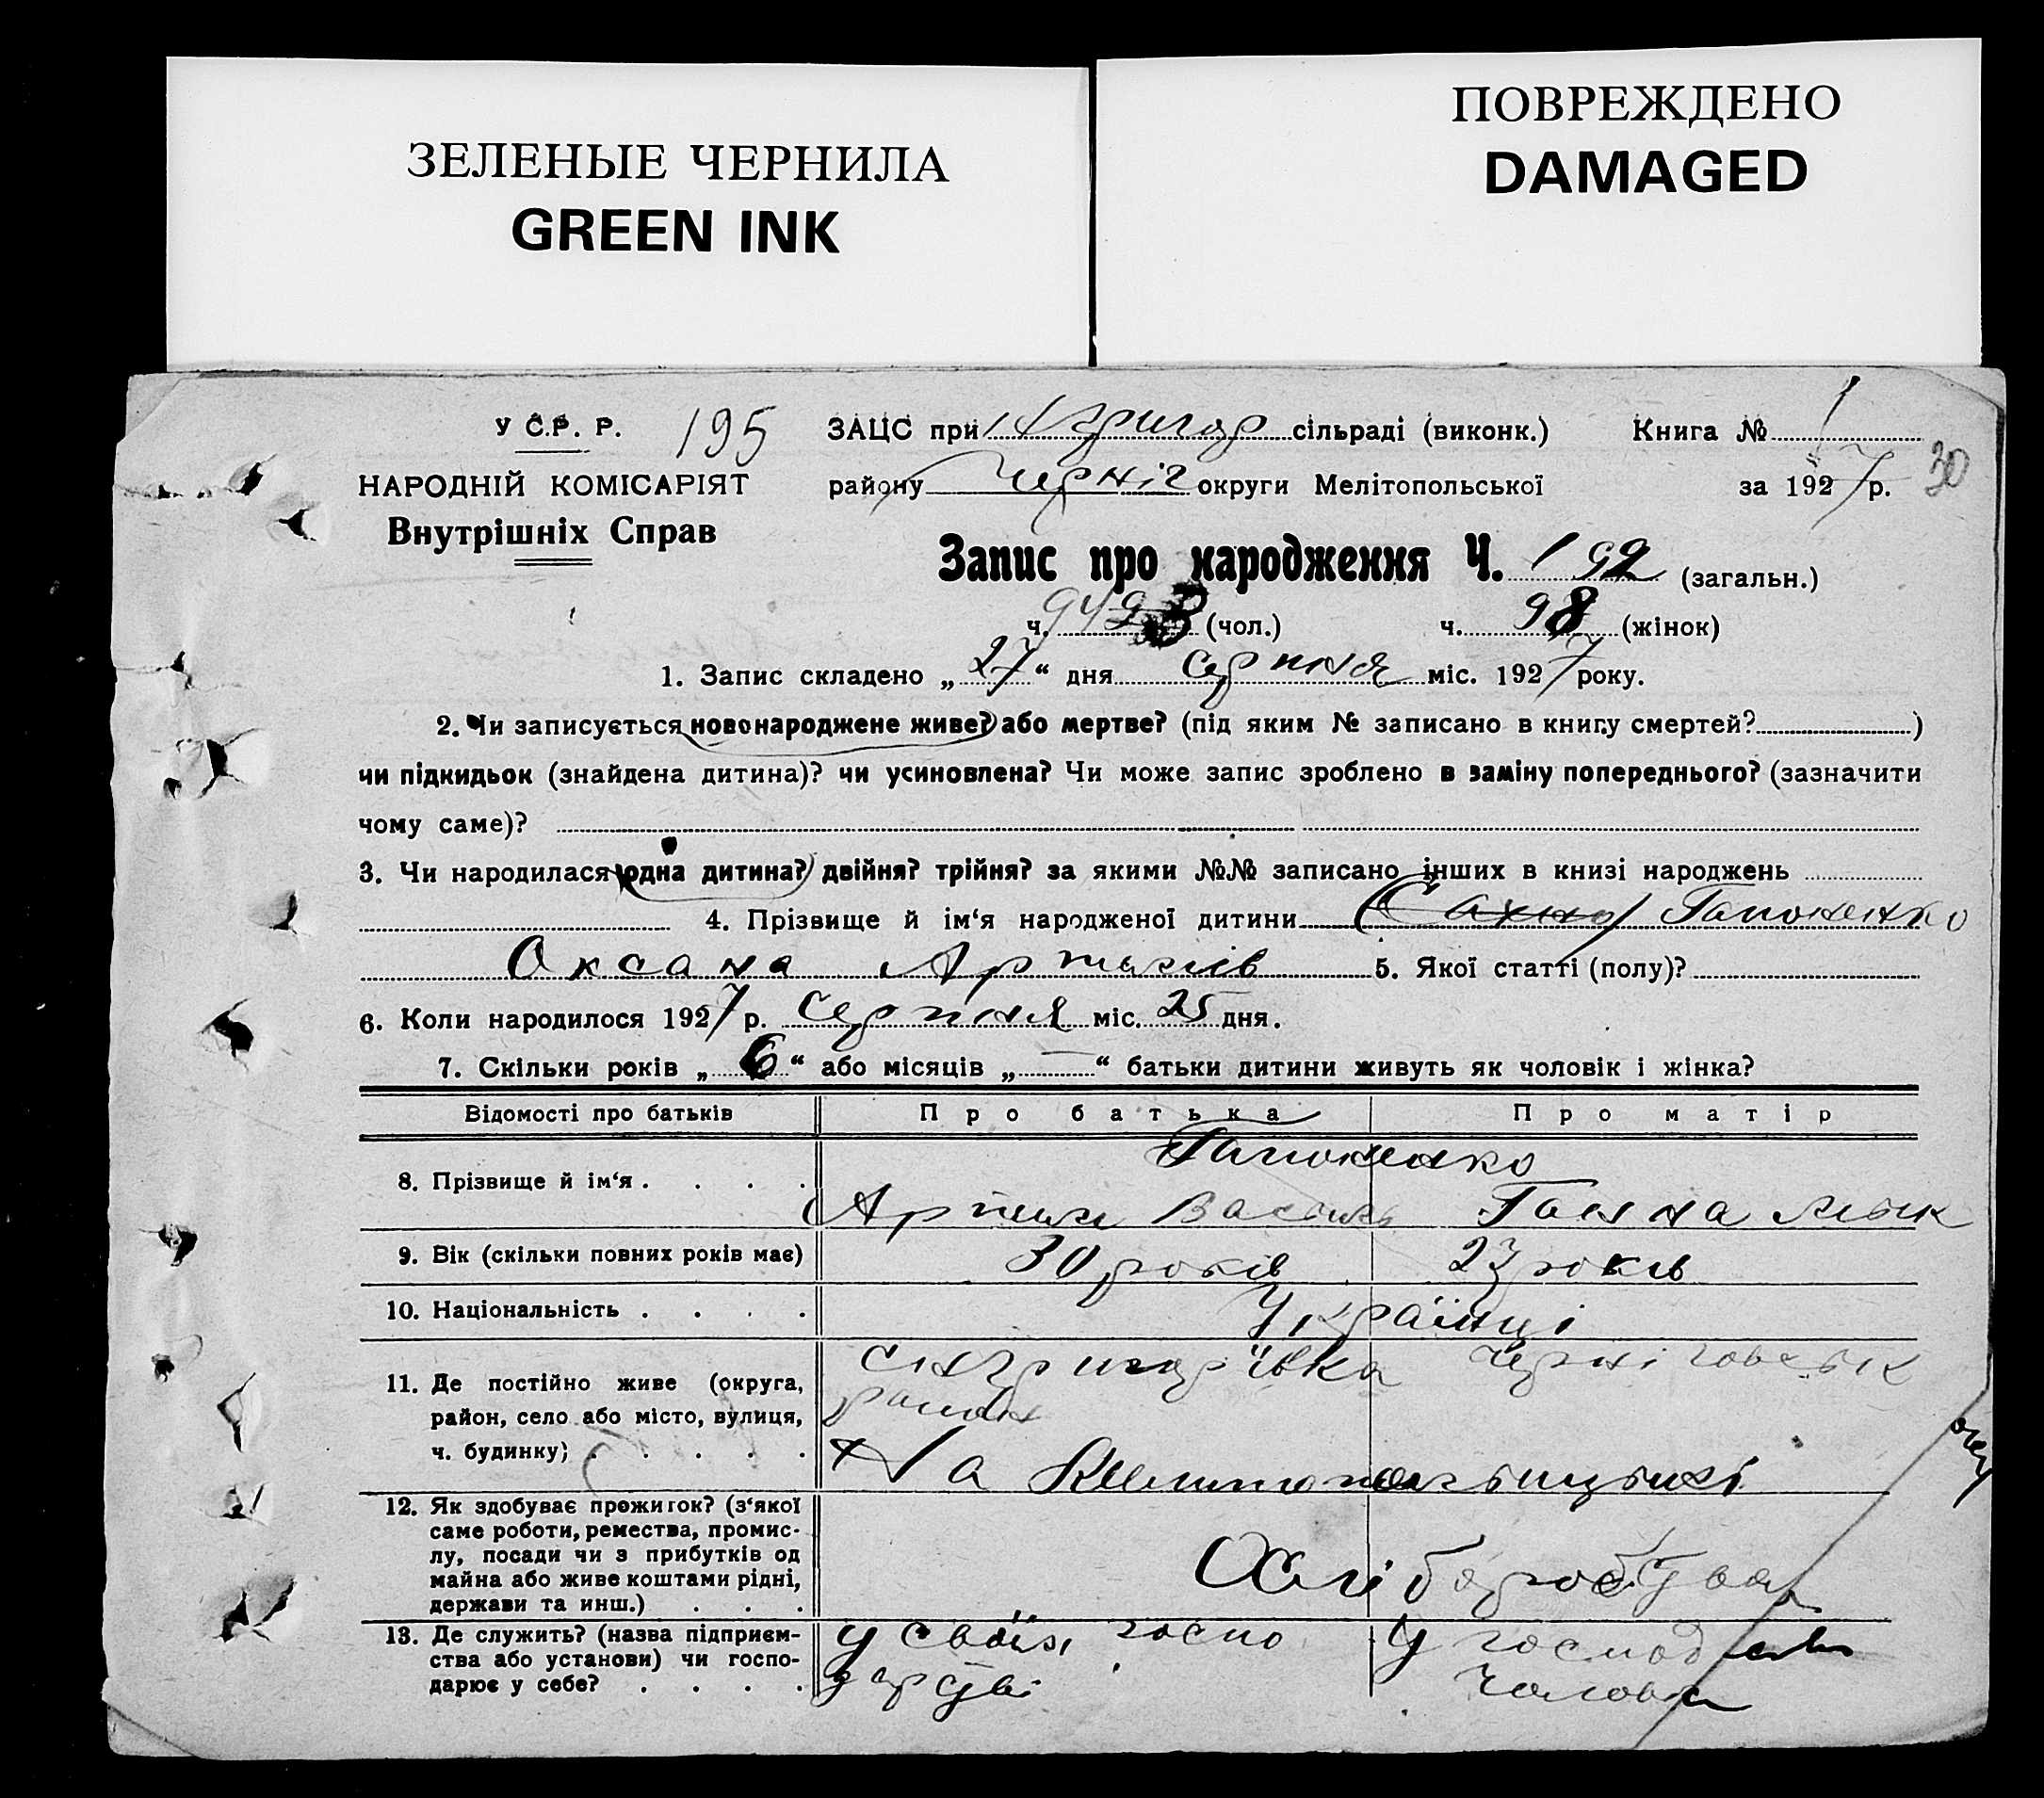 ЗЕЛЕНЫЕ ЧЕРНИЛА
GREEN INK
ПОВРЕЖДЕНО
DAMAGED
У С.Р. Р. 195 ЗАЦС при сільраді (виконк.) Книга № 1
НАРОДНІЙ КОМІСАРІЯТ району Черніг округи Мелітопольської за 1927 р. 30
Внутрішніх Справ
Запис про народження Ч. 192 (загальн.)
ч. (чол.) ч. 98 (жінок)
1. Запис складено „27“ дня серпня міс. 1927 року.
2. Чи записується новонароджене живе? або мертве? (під яким № записано в книгу смертей? )
чи підкидьок (знайдена дитина)? чи усиновлена? Чи може запис зроблено в заміну попереднього? (зазначити
чому саме)?
3. Чи народилася одна дитина? двійня? трійня? за якими №№ записано інших в книзі народжень
4. Прізвище й ім‘я народженої дитини Гапоненко
Оксана Артемів 5. Якої статті (полу)?
6. Коли народилося 1927 р. серпня міс. 25 дня.
7. Скільки років „6“ або місяців „—“ батьки дитини живуть як чоловік і жінка?
Відомості про батьків Про батька Про матір
Гапоненко
8. Прізвище й ім‘я . . . . Артем Василь Ганна
9. Вік (скільки повних років має) 30 років 23 років
10. Національність . . . . Українці
11. Де постійно живе (округа,
район, село або місто, вулиця,
ч. будинку; . . . . .
На Мелитопольщині
12. Як здобуває прожиток? (з‘якої
саме роботи, ремества, промис-
лу, посади чи з прибутків од
майна або живе коштами рідні,
держави та инш.) . . .
Хліборобства
13. Де служить? (назва підприєм- у своїм госпо
ства або установи) чи госпо-
дарює у себе? . . . . дарстві